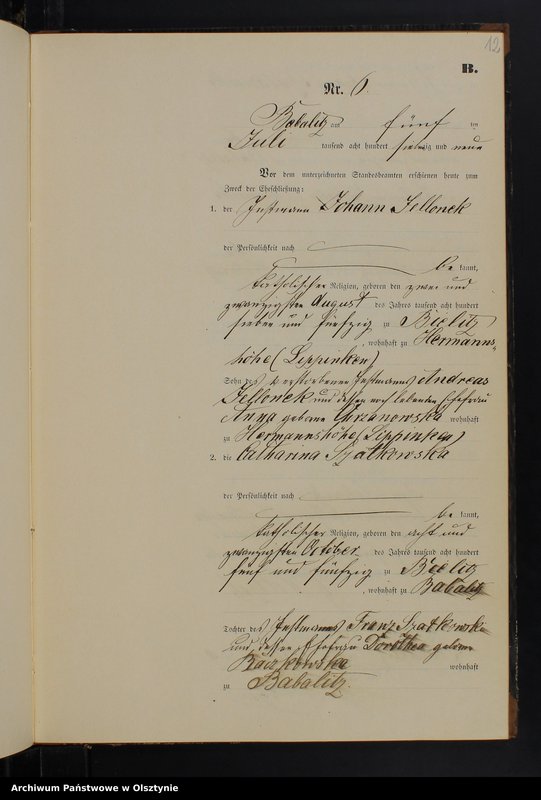 12
B.
Nr. 6.
Babalitz am fünf ten
Juli tausend acht hundert siebenzig und neun
Vor dem unterzeichneten Standesbeamten erschienen heute zum
Zweck der Eheschließung:
1. der Instmann Johann Jellonek
der Persönlichkeit nach
be kannt,
katholischer Religion, geboren den zwei und
zwanzigsten August des Jahres tausend acht hundert
sieben und fünfzig zu Bielitz
, wohnhaft zu Hermanns-
höhe (Lippinken)
Sohn des verstorbenen Instmanns Andreas
Jellonek und dessen noch lebenden Ehefrau
Anna geborne wohnhaft
zu Hermannshöhe (Lippinken)
2. die Catharina Szatkowska
der Persönlichkeit nach
be kannt,
katholischer Religion, geboren den acht und
zwanzigsten October des Jahres tausend acht hundert
fünf und fünfzig zu Bielitz
, wohnhaft zu Babalitz
Tochter des Instmanns Franz Szatkowski
und dessen Ehefrau Dorothea geborne
Raczkowska wohnhaft
zu Babalitz.
Archiwum Państwowe w Olsztynie